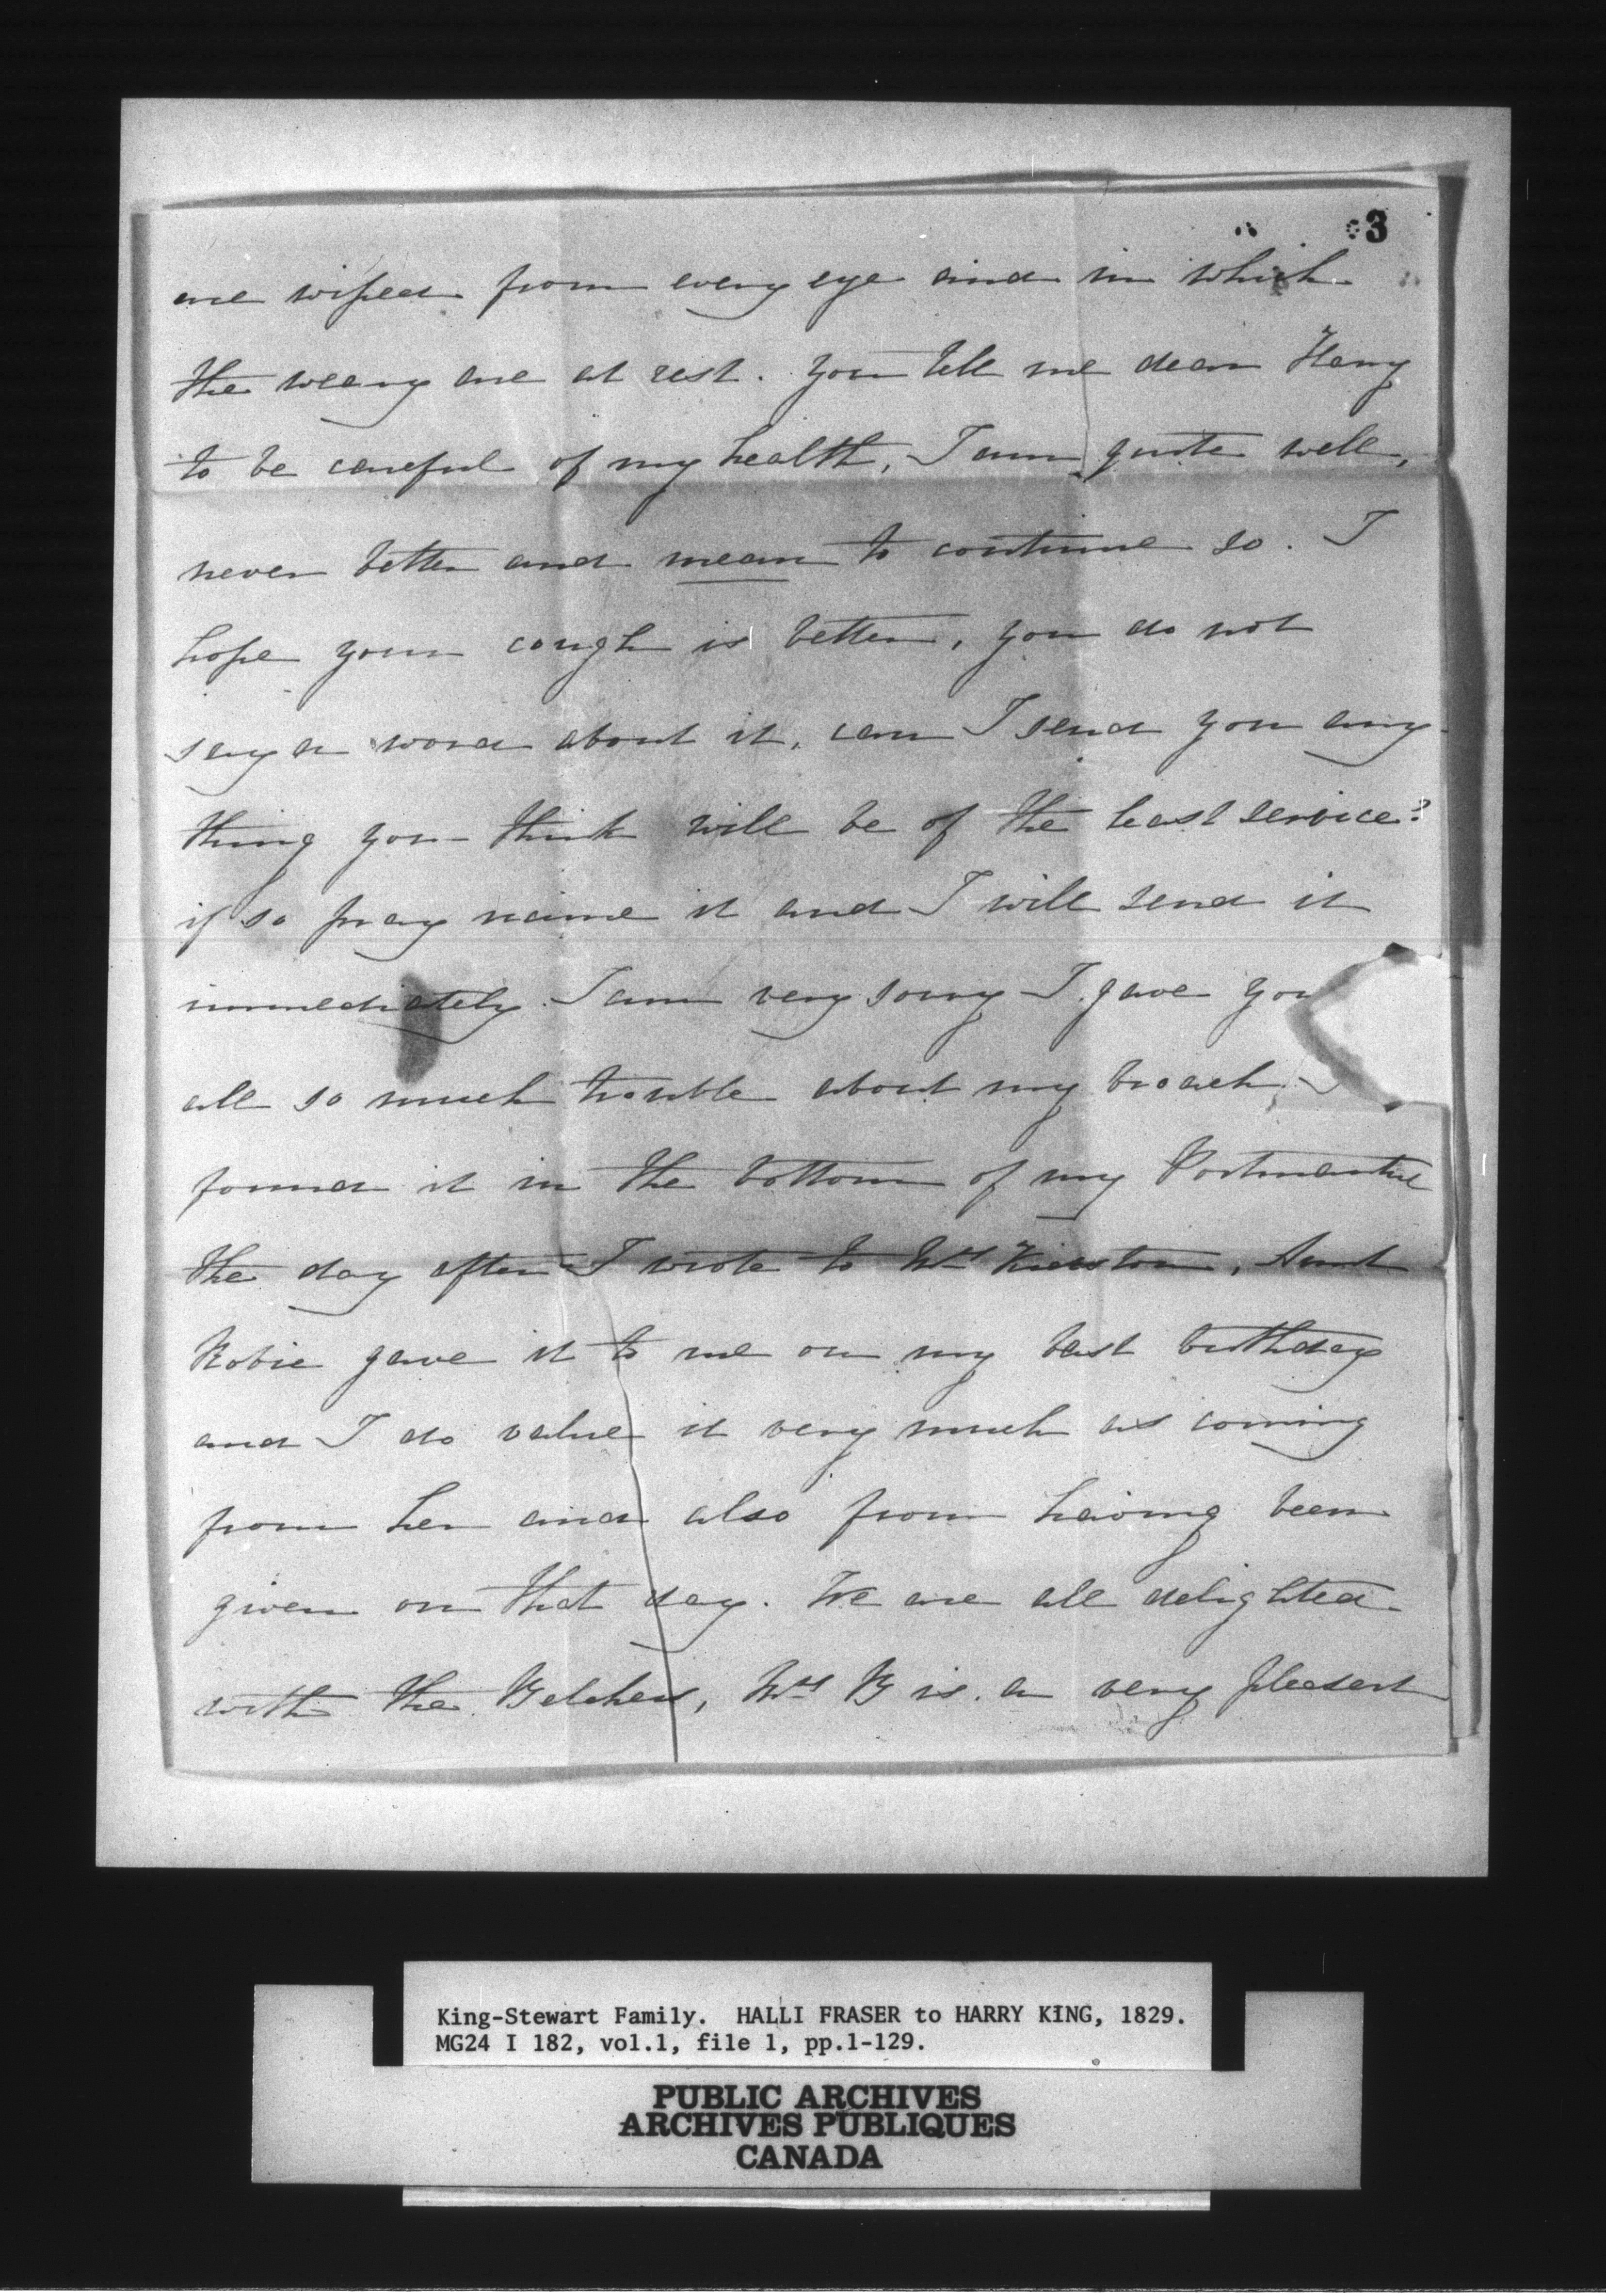 3
are wiped from every eye and in which
the weary are at rest. you tell me dear Harry
to be careful of my health, I am quite well,
never better and mean to continue so. I
hope your cough is better, you do not
say a word about it, can I send you any
thing you think will be of the least service?
if so pray name it and I will send it
immediately. I am very sorry I gave you
all so much trouble about my broach, I
found it in the bottom of my
the day after I wrote to Mrs , Aunt
Robie gave it to me on my last birthday
and I do value it very much as coming
from her and also from having been
given on that day. We are all delighted
with the Belchers, Mrs B is a very pleasant
King-Stewart Family. HALLI FRASER to HARRY KING, 1829.
MG24 I 182, vol.1, file 1, pp.1-129.
PUBLIC ARCHIVES
ARCHIVES PUBLIQUES
CANADA